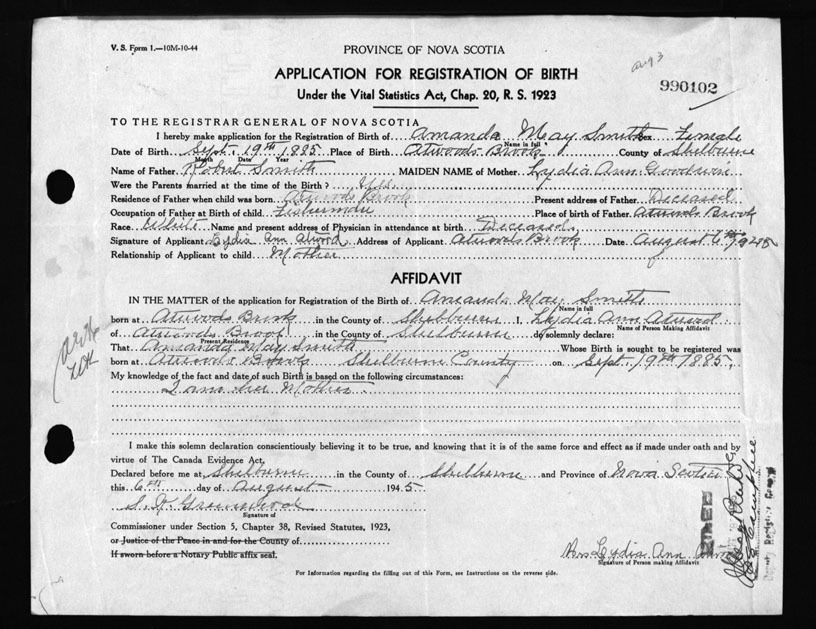 V. S. Form 1.—10M-10-44
PROVINCE OF NOVA SCOTIA
Aug 3
APPLICATION FOR REGISTRATION OF BIRTH
990102
Under the Vital Statistics Act, Chap. 20, R. S. 1923
TO THE REGISTRAR GENERAL OF NOVA SCOTIA
I hereby make application for the Registration of Birth of Amanda May Smith Sex Female
Name in full
Date of Birth Sept. 19th 1885 Place of Birth Atwoods Brook County of Shelburne
Month Date Year
Name of Father Robert Smith MAIDEN NAME of Mother Lydia Ann Goodwin
Were the Parents married at the time of the Birth? Yes
Residence of Father when child was born Atwoods Brook Present address of Father Deceased
Occupation of Father at Birth of child Fisherman Place of birth of Father Atwoods Brook
Race White Name and present address of Physician in attendance at birth Deceased
Signature of Applicant Lydia Ann Atwood Address of Applicant Atwoods Brook Date August 6th 1945
Relationship of Applicant to child Mother
AFFIDAVIT
IN THE MATTER of the application for Registration of the Birth of Amanda May Smith
Name in full
born at Atwoods Brook in the County of Shelburne I, Lydia Ann Atwood
Name of Person Making Affidavit
of Atwoods Brook in the County of Shelburne do solemnly declare:
Present Residence
That Amanda May Smith Whose Birth is sought to be registered was
born at Atwoods Brook Shelburne County on Sept. 19th 1885.
My knowledge of the fact and date of such Birth is based on the following circumstances:
I am her Mother.
I make this solemn declaration conscientiously believing it to be true, and knowing that it is of the same force and effect as if made under oath and by
virtue of The Canada Evidence Act.
Declared before me at Shelburne in the County of Shelburne and Province of Nova Scotia
this 6th day of August 1945
Greenwood
Signature of
Commissioner under Section 5, Chapter 38, Revised Statutes, 1923,
or Justice of the Peace in and for the County of
If sworn before a Notary Public affix seal.
Mrs Lydia Ann Atwood
Signature of Person making Affidavit
For Information regarding the filling out of this Form, see Instructions on the reverse side.